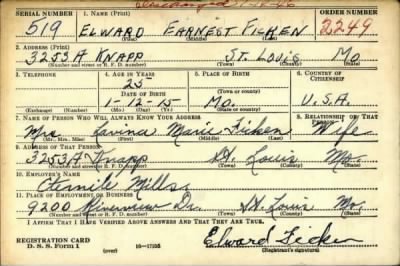 REGISTRATION CARD
SERIAL NUMBER 1. NAME (Print) ORDER NUMBER
519 ELWARD EARNEST FICKEN 2249
(First) (Middle) (Last)
2. ADDRESS (Print)
3253A KNAPP ST. LOUIS MO
(Number and street or R. F. D. number) (Town) (County) (State)
3. TELEPHONE 4. AGE IN YEARS 5. PLACE OF BIRTH 6. COUNTRY OF CITIZENSHIP
25
DATE OF BIRTH
1-12-15 Mo. U.S.A.
(Exchange) (Number) (Mo.) (Day) (Yr.) (State or country)
7. NAME OF PERSON WHO WILL ALWAYS KNOW YOUR ADDRESS 8. RELATIONSHIP OF THAT PERSON
Mrs. Lavina Marie Ficken Wife
(Mr., Mrs., Miss) (First) (Middle) (Last)
9. ADDRESS OF THAT PERSON
3253A Knapp St. Louis Mo.
(Number and street or R. F. D. number) (Town) (County) (State)
10. EMPLOYER'S NAME
Mills
11. PLACE OF EMPLOYMENT OR BUSINESS
9200 Riverview Dr. St. Louis Mo.
(Number and street or R. F. D. number) (Town) (County) (State)
I AFFIRM THAT I HAVE VERIFIED ABOVE ANSWERS AND THAT THEY ARE TRUE.
REGISTRATION CARD
D. S. S. Form 1 (over) 16-17105
Elward Ficken
(Registrant's signature)